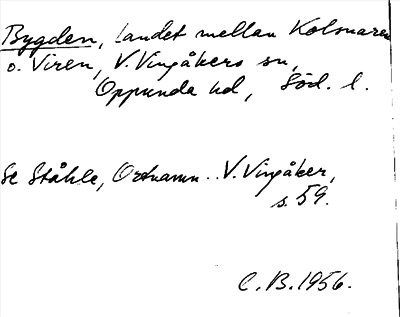 Bygden, landet mellan Kolsnaren
o. Viren, V. Vingåkers sn,
Oppunda hd, Söd. l.
Se Ståhle, Ortnamn .. V. Vingåker,
s. 59.
C. B. 1956.